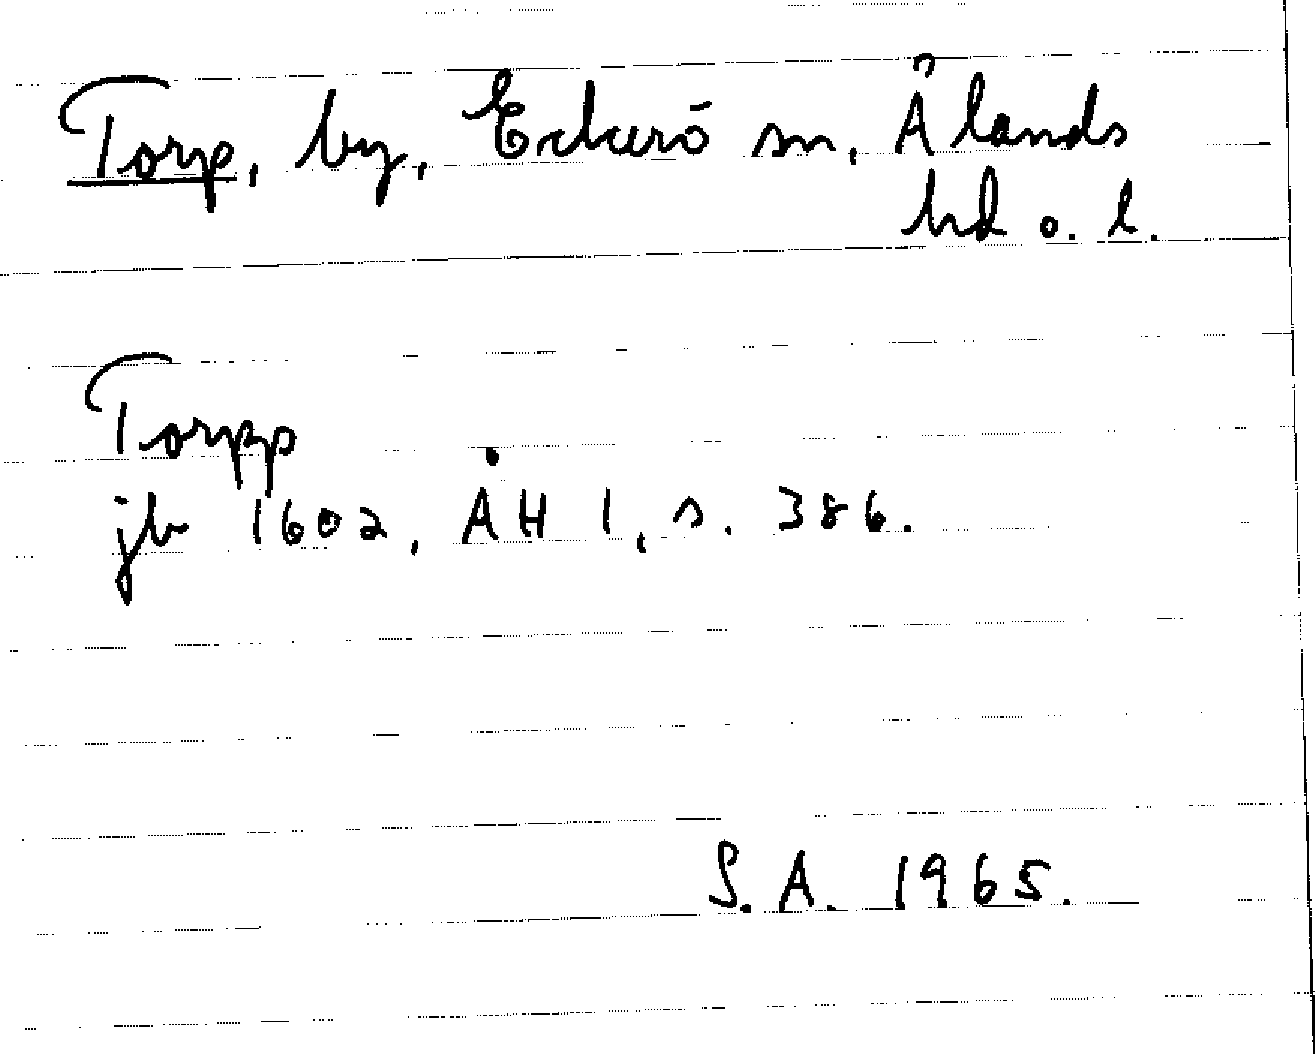 Torp, by, Eckerö sn, Ålands
hd o. l.
Torpp
jb 1602, ÅH 1, s. 386.
S.A. 1965.